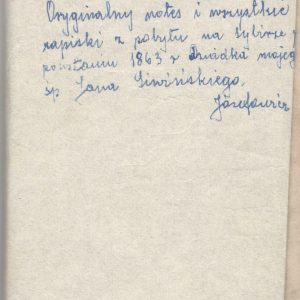 Oryginalny notes i wszystkie
zapiski z pobytu na Sybirze p
powstaniu 1863 r dziadka mojeg
śp. Jana Siwińskiego.
Józefowicz